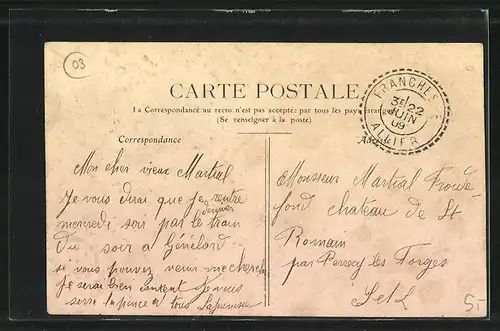 03
CARTE POSTALE
La Correspondance au recto n'est pas acceptée par tous les pays étrangers
(Se renseigner à la poste)
FRANCHES
3E 22
JUIN
09
ALLIER
Correspondance
Mon cher vieux Martial
Je vous dirai que je rentre
mercredi soir par le train
du soir à Génelard
si vous pouvez venir me chercher
je serai bien content je vous
serre la pince à tous
Monsieur Martial
fond chateau de St
Romain
par Perrecy les Forges
S et L
5.-